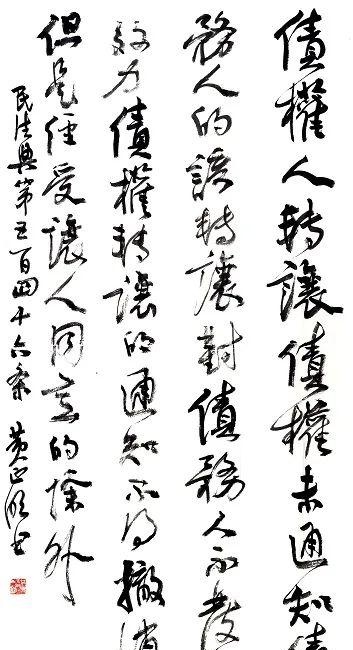 債權人轉讓債權未通知債
務人的該轉讓對債務人不發
效力債權轉讓的通知不得撤
但是經受讓人同意的除外
民法典第五百四十六条 黄正